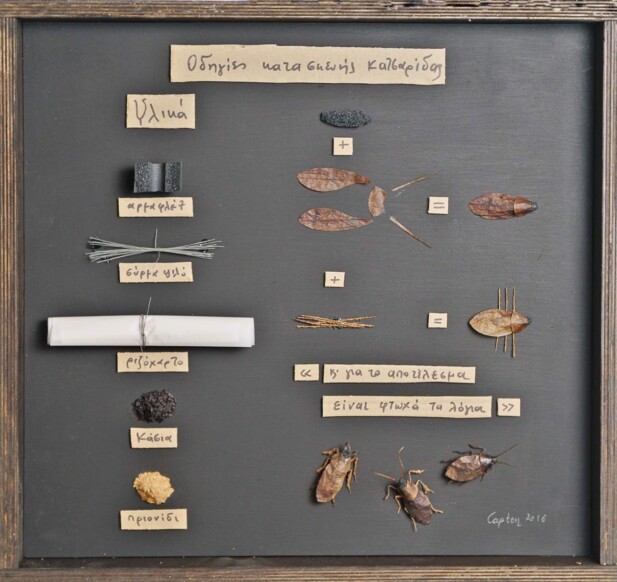 Οδηγίες κατασκευής κατσαρίδας
Υλικά
+
αρμαφλέξ
=
σύρμα ψιλό
+
=
ριζόχαρτο
« κ' για το αποτέλεσμα
είναι φτωχά τα λόγια »
κάσια
πριονίδι
2016